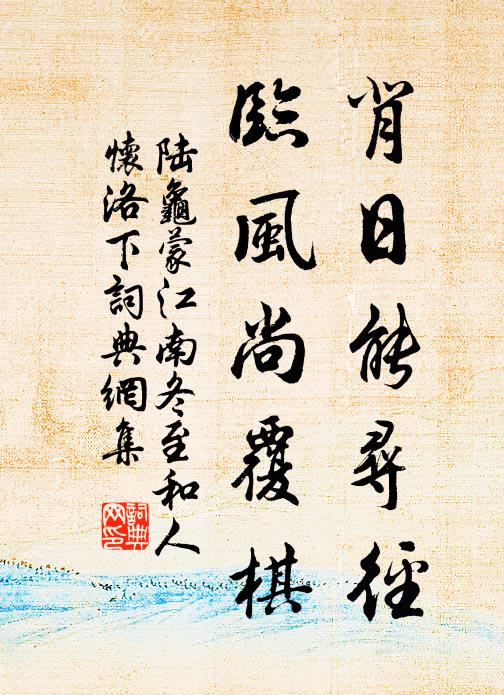 背日能尋徑
臨風尚覆棋
陆龜蒙江南冬至和人
懷洛下詞典網集
詞典
网印